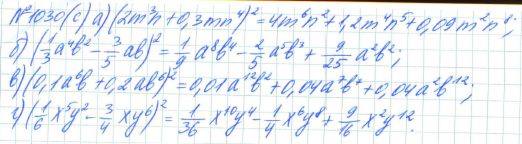 №1030(с) а) (2m³n + 0,3mn⁴)² = 4m⁶n² + 1,2m⁴n⁵ + 0,09m²n⁸;
б) (1/3 a⁴b² - 3/5 ab)² = 1/9 a⁸b⁴ - 2/5 a⁵b³ + 9/25 a²b²;
в) (0,1a⁶b + 0,2ab⁶)² = 0,01a¹²b² + 0,04a⁷b⁷ + 0,04a²b¹²;
г) (1/6 x⁵y² - 3/4 xy⁶)² = 1/36 x¹⁰y⁴ - 1/4 x⁶y⁸ + 9/16 x²y¹².